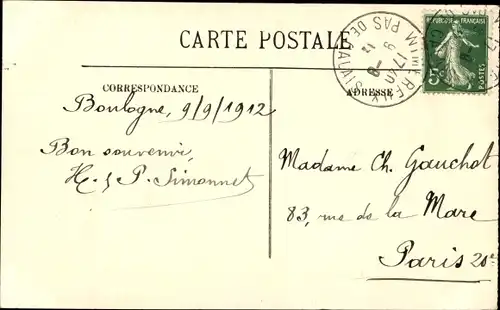 CARTE POSTALE
CORRESPONDANCE
ADRESSE
RÉPUBLIQUE FRANÇAISE
5c
POSTES
WIMEREUX
PAS DE CALAIS
Boulogne, 9/9/1912
Bon souvenir,
H. & P. Simonnet
Madame Ch. Gauchot
83, rue de la Mare
Paris 20e